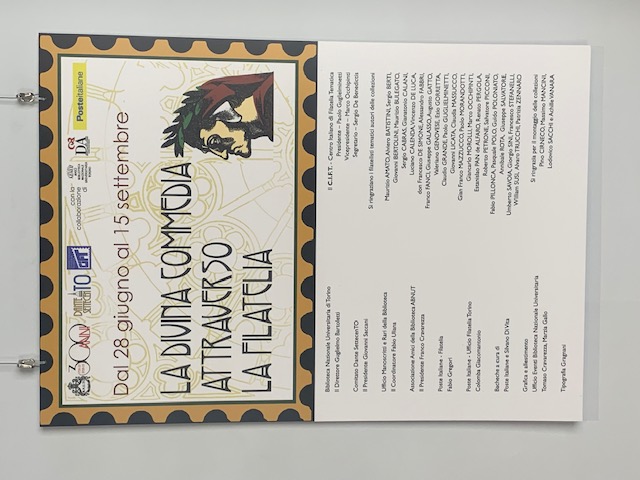 300 ANNI
DANTE
SETTECEN
TO
con la
collaborazione
di
Posteitaliane
Dal 28 giugno al 15 settembre
LA DIVINA COMMEDIA
ATTRAVERSO
LA FILATELIA
Biblioteca Nazionale Universitaria di Torino
Il Direttore Guglielmo Bartoletti
Comitato Dante SettecenTO
Il Presidente Giovanni Saccani
Ufficio Manoscritti e Rari della Biblioteca
Il Coordinatore Fabio Uliana
Associazione Amici della Biblioteca ABNUT
Il Presidente Franco Cravarezza
Poste Italiane - Filatelia
Fabio Gregori
Poste Italiane - Ufficio Filatelia Torino
Colomba Giacomontonio
Bacheche a cura di
Poste Italiane e Silvano Di Vita
Grafica e allestimento
Ufficio Eventi Biblioteca Nazionale Universitaria
Tomaso Cravarezza, Marzia Gallo
Tipografia Gragnani
Il C.I.F.T. - Centro Italiano di Filatelia Tematica
Presidente - Paolo Guglielminetti
Vicepresidente - Marco Occhipinti
Segretario - Sergio De Benedictis
Si ringraziano i filatelisti tematici autori delle collezioni
Maurizio AMATO, Alviero BATISTINI, Sergio BERTI,
Giovanni BERTOLINI, Maurizio BULEGATO,
Sergio CABRAS, Giannantonio CALANI,
Luciano CALENDA, Vincenzo DE LUCA,
don Francesco DE SIMONE, Alessandro FABBRI,
Franco FANCI, Giuseppe GALASSO, Augusto GATTO,
Valeriano GENOVESE, Ezio GORRETTA,
Claudio GRANDE, Paolo GUGLIELMINETTI,
Giovanni LICATA, Claudia MASSUCCO,
Gian Franco MAZZUCCO, Paolo MORANDOTTI,
Giancarlo MOROLLI, Marco OCCHIPINTI,
Estanislao PAN de ALFARO, Renato PERGOLA,
Roberto PETRONE, Salvatore PICCONI,
Fabio PILLONCA, Pasquale POLO, Giulio POLONIATO,
Annibale ROTA, Giuseppe SALVATORE,
Umberto SAVOIA, Giorgio SINI, Francesco STEFANELLI,
William SUSI, Alvaro TRUCCHI, Patrizia ZENNARO
Si ringrazia per il montaggio delle collezioni
Pino CIRNECO, Massimo MANCINI,
Lodovico SACCHI e Achille VANARA